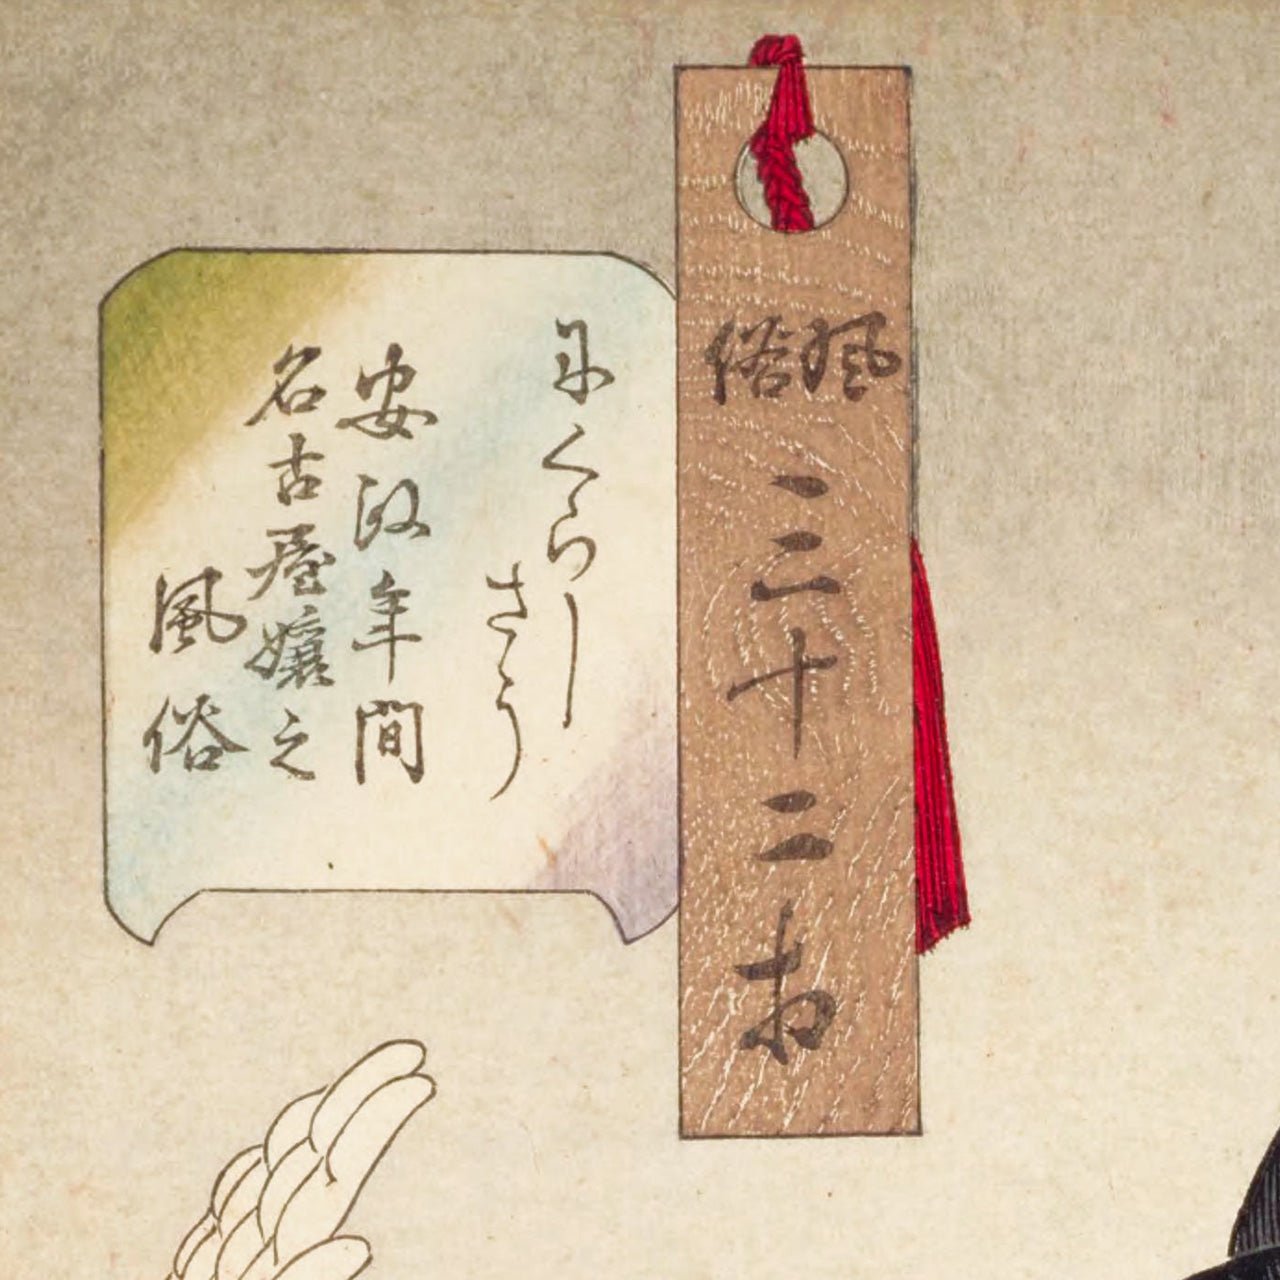 風俗
三十二相
にくらし
さう
安政年間
名古屋嬢之
風俗